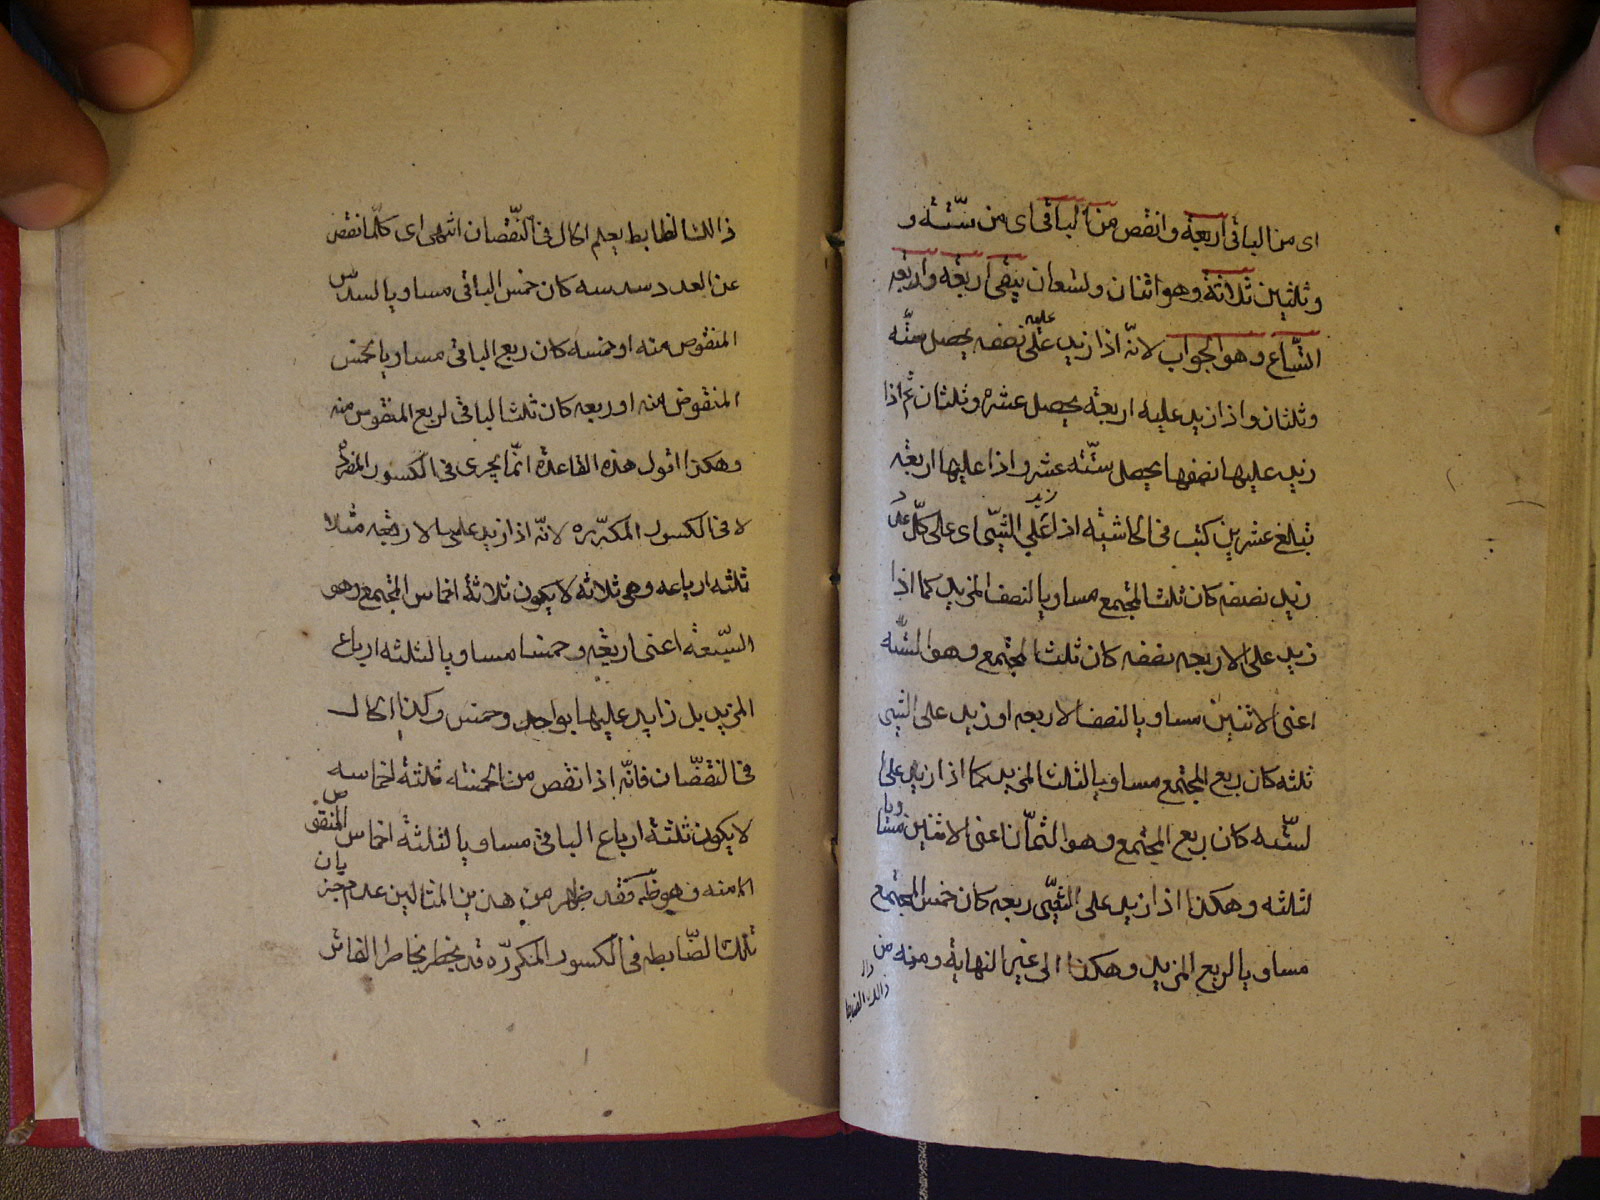 اى من الباقى اربعة وانقص من الباقى اى من ستّة و
وثلثين ثلاثة وهو اثنان وتسعان يبقى اربعة واربعة
اتساع وهو الجواب لانّه اذا زيد عليه نصفه يحصل ستّه
وثلثان واذا زيد عليه اربعة يحصل عشره وثلثان ثم اذا
زيد عليها نصفها يحصل ستّه عشر واذا عليها اربعة
تبلغ عشرين كتب فى الحاشيه اذا زيد على الشّى اى على كلّ عدد
زيد نصفه كان ثلث المجتمع مساويا لنصف المزيد كما اذا
زيد على الاربعه نصفه كان ثلث المجتمع وهو الستّه
اعنى الاثنين مساويا لنصف الاربعه او زيد على الشى
ثلثه كان ربع المجتمع مساويا لثلث المزيد كما اذا زيد على
ستّه كان ربع المجتمع وهو الثمان اعنى الاثنين مساويا
لثلثه وهكذا اذا زيد على الشّى ربعه كان خمس المجتمع
مساويا لربع المزيد وهكذا الى غير النهاية ومنه من
ذالك الضابط
ذالك الضابط يعلم الحال فى النّقصان انتهى اى كلّما نقص
عن العدد سدسه كان خمس الباقى مساويا لسدس
المنقوص منه او خمسه كان ربع الباقى مساويا لخمس
المنقوص منه او ربعه كان ثلث الباقى لربع المنقوس منه
وهكذا اقول هذه القاعدة انّما يجرى فى الكسور المفردة
لا فى الكسور المكرّره لانّه اذا زيد على الاربعه مثلا
ثلثه ارباعه وهى ثلاثه لا يكون ثلاثة اخماس المجتمع وهو
السّبعة اعنى اربعة وخمسا مساويا لثلثه ارباع
المزيد بل زايد عليها بواحد وخمس وكذا الحال
فى النقصان فانّه اذا نقص من الخمسه ثلثة اخماسه
لا يكون ثلثة ارباع الباقى مساويا لثلثة اخماس المنقوص
منه وهو ظ فقد ظهر من هذين المثالين عدم جريان
تلك الضّابطه فى الكسور المكررّه قد يخطر بخاطر الفاتر